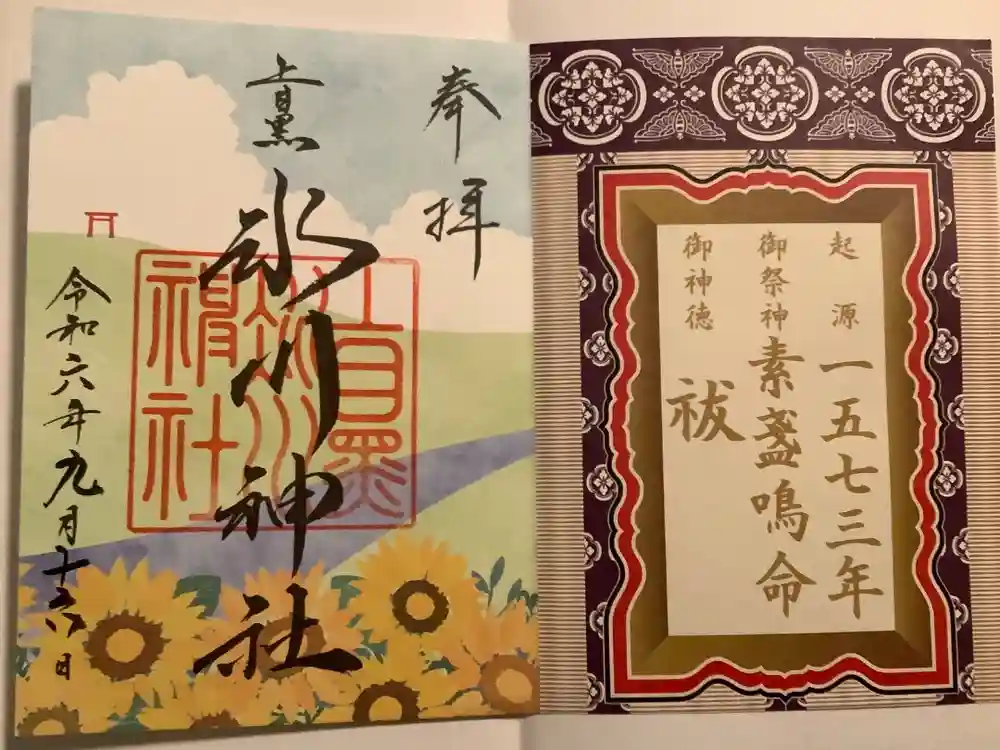 奉拝
上目黒
氷川神社
上目黒氷川神社
令和六年九月十六日
起源 一五七三年
御祭神 素盞鳴命
御神徳 祓